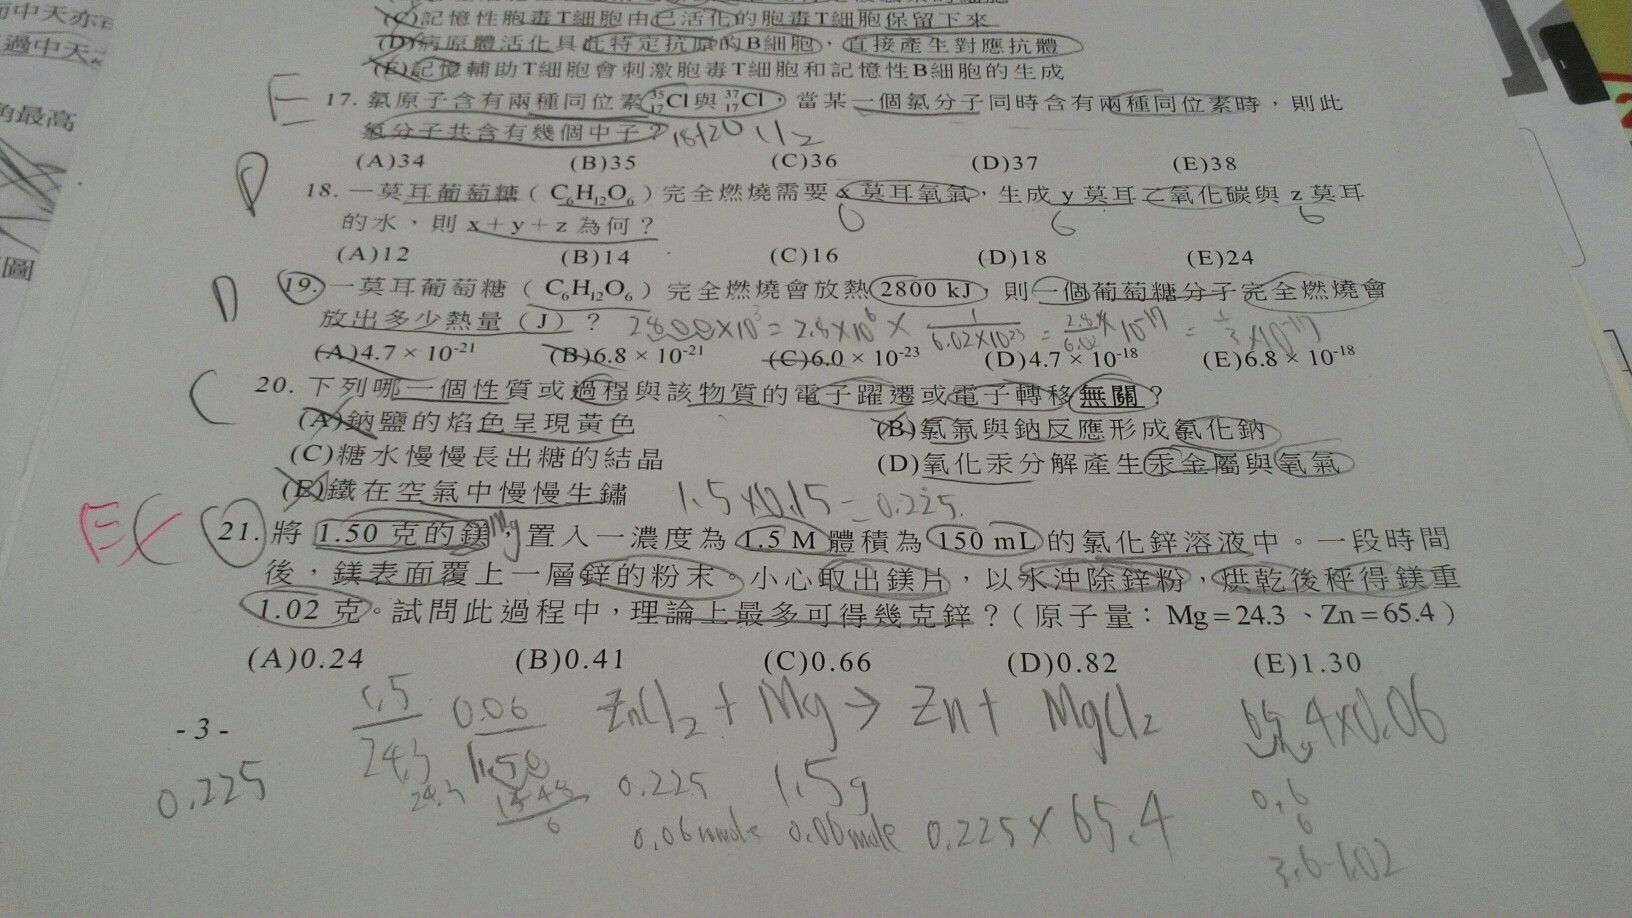 (C)記憶性胞毒T細胞由已活化的胞毒T細胞保留下來
(D)病原體活化具此特定抗原的B細胞，直接產生對應抗體
(E)記憶輔助T細胞會刺激胞毒T細胞和記憶性B細胞的生成
E 17. 氯原子含有兩種同位素³⁵₁₇Cl與³⁷₁₇Cl，當某一個氯分子同時含有兩種同位素時，則此
氯分子共含有幾個中子？ 18+20 Cl₂
(A)34 (B)35 (C)36 (D)37 (E)38
D 18. 一莫耳葡萄糖（C₆H₁₂O₆）完全燃燒需要 x 莫耳氧氣，生成 y 莫耳二氧化碳與 z 莫耳
的水，則 x＋y＋z 為何？ 6 6 6
(A)12 (B)14 (C)16 (D)18 (E)24
D 19. 一莫耳葡萄糖（C₆H₁₂O₆）完全燃燒會放熱 2800 kJ，則一個葡萄糖分子完全燃燒會
放出多少熱量（J）？ 2800×10³ = 2.8×10⁶ × 1/6.02×10²³
(A)4.7 × 10⁻²¹ (B)6.8 × 10⁻²¹ (C)6.0 × 10⁻²³ (D)4.7 × 10⁻¹⁸ (E)6.8 × 10⁻¹⁸
C 20. 下列哪一個性質或過程與該物質的電子躍遷或電子轉移無關？
(A)鈉鹽的焰色呈現黃色 (B)氯氣與鈉反應形成氯化鈉
(C)糖水慢慢長出糖的結晶 (D)氧化汞分解產生汞金屬與氧氣
(E)鐵在空氣中慢慢生鏽 1.5×0.15=0.225
E C 21. 將 1.50 克的鎂，Mg 置入一濃度為 1.5 M 體積為 150 mL 的氯化鋅溶液中。一段時間
後，鎂表面覆上一層鋅的粉末。小心取出鎂片，以水沖除鋅粉，烘乾後秤得鎂重
1.02 克。試問此過程中，理論上最多可得幾克鋅？（原子量：Mg＝24.3、Zn＝65.4）
(A)0.24 (B)0.41 (C)0.66 (D)0.82 (E)1.30
- 3 -
1.5/24.3 0.06 ZnCl₂ + Mg → Zn + MgCl₂ 65.4×0.06
24.3 1.50
0.225 0.225 1.5g
0.06mole 0.06mole 0.225×65.4
3.6-1.02
過中天
角最高
圖